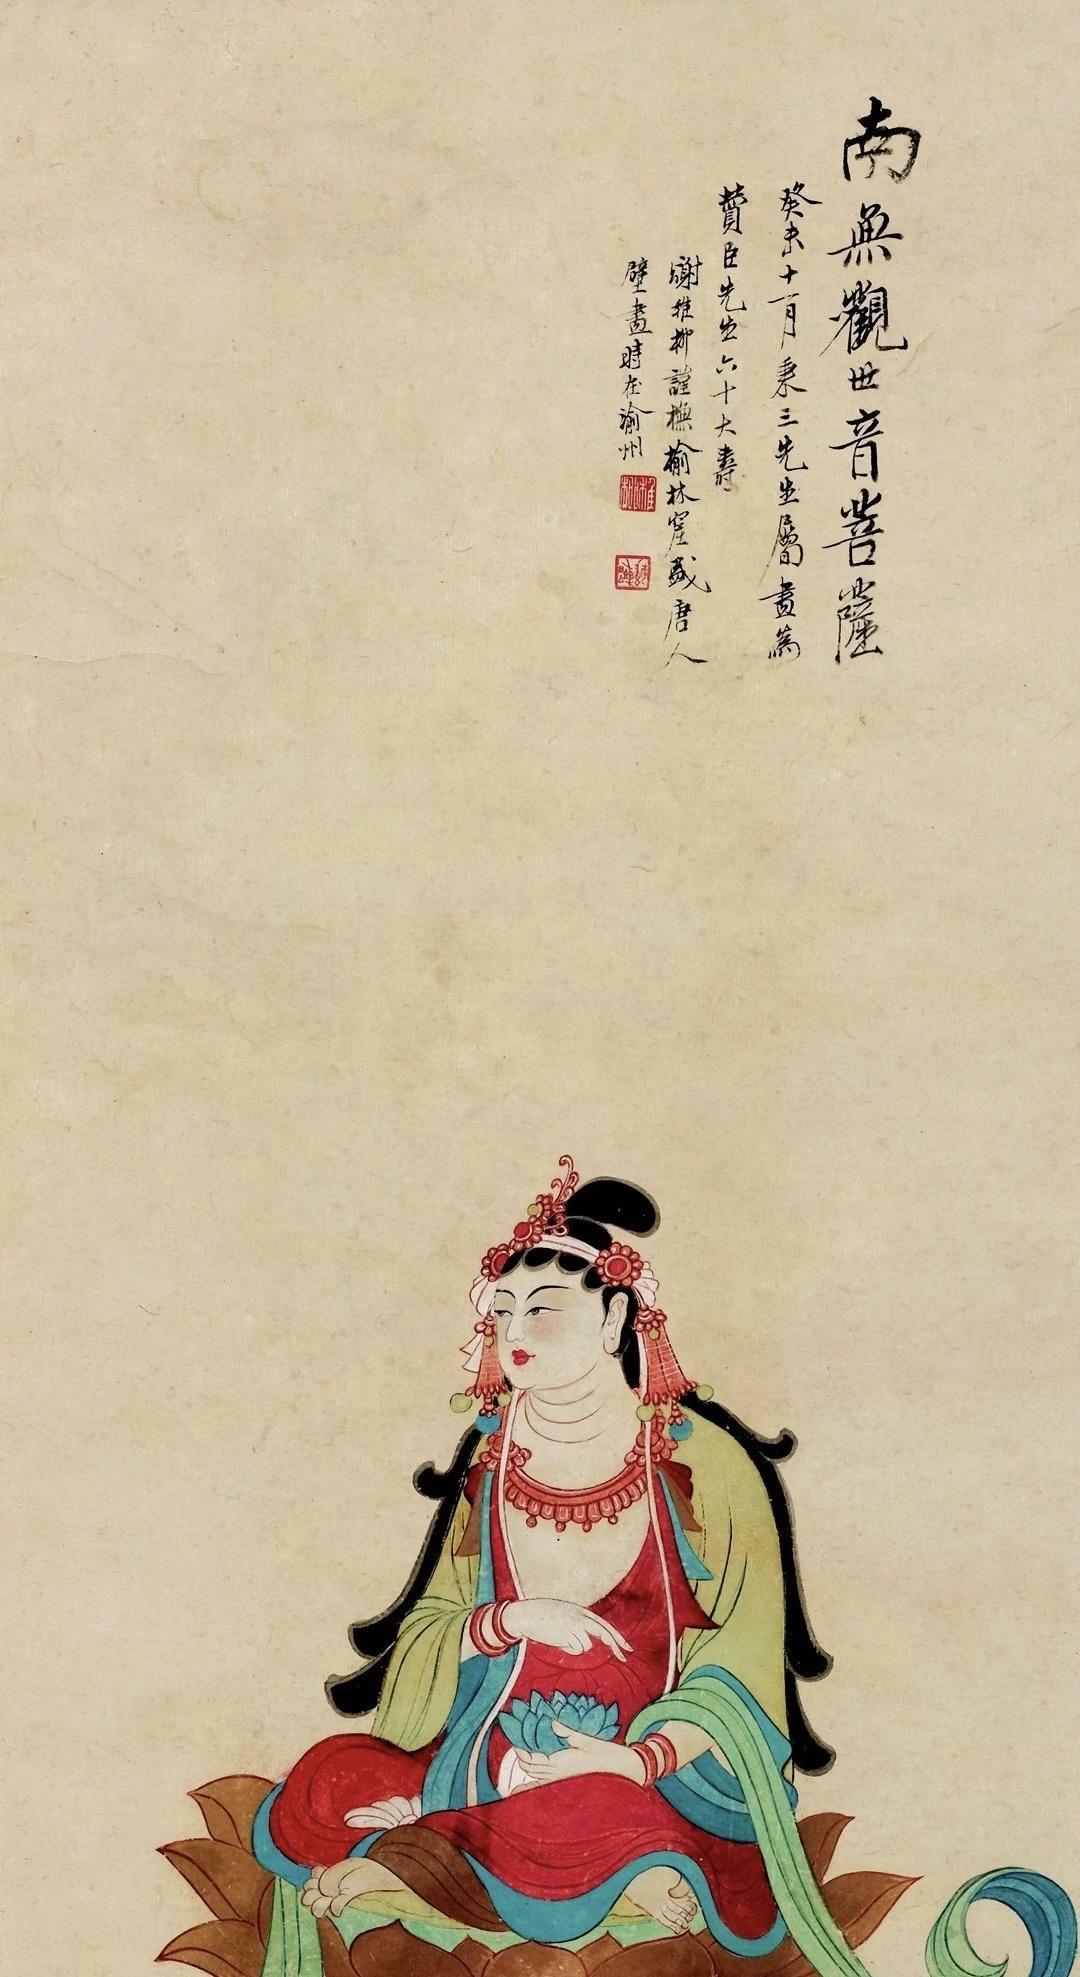 南無觀世音菩薩
癸未十一月秉三先生屬畫為
贊臣先生六十大壽
謝稚柳謹橅榆林窟盛唐人
壁畫時在渝州
稚柳